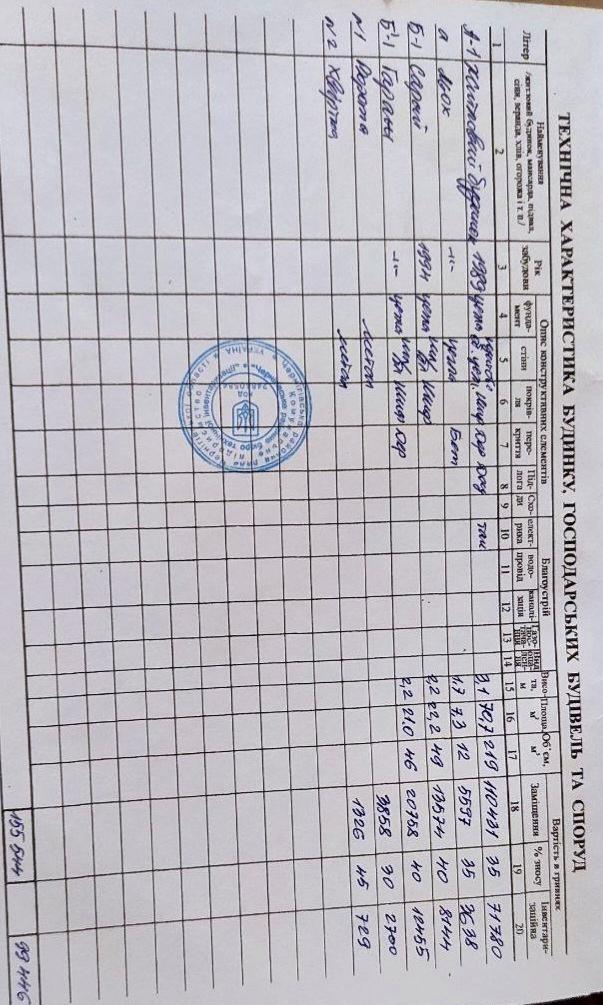 ТЕХНІЧНА ХАРАКТЕРИСТИКА БУДИНКУ, ГОСПОДАРСЬКИХ БУДІВЕЛЬ ТА СПОРУД
Літер Найменування /житловий будинок, мансарда, підвал, сіни, веранда, хлів, огорожа і т. п./ Рік забудови Опис конструктивних елементів Благоустрій Висота, м Площа, м² Об'єм, м³ Вартість в гривнях
фундамент стіни покрівля перекриття Підлога Сходи електрика водопровід каналізація Газопостачання Вид опалення Заміщення % зносу Інвентаризаційна
1 2 3 4 5 6 7 8 9 10 11 12 13 14 15 16 17 18 19 20
А-1 Житловий будинок 1989 цегла шифер так 3,1 70,7 219 110431 35 71780
а Льох -"- цегла Бет 1,7 7,3 12 5597 35 3638
Б-1 Сарай 1994 цегла шиф 2,2 22,2 49 13574 40 8144
Б'-1 Гараж -"- цегла шиф 2,2 21,0 46 20758 40 12455
№1 Ворота метал 3858 30 2700
№2 Хвіртка метал 1326 45 729
155 544 99 446
УКРАЇНА